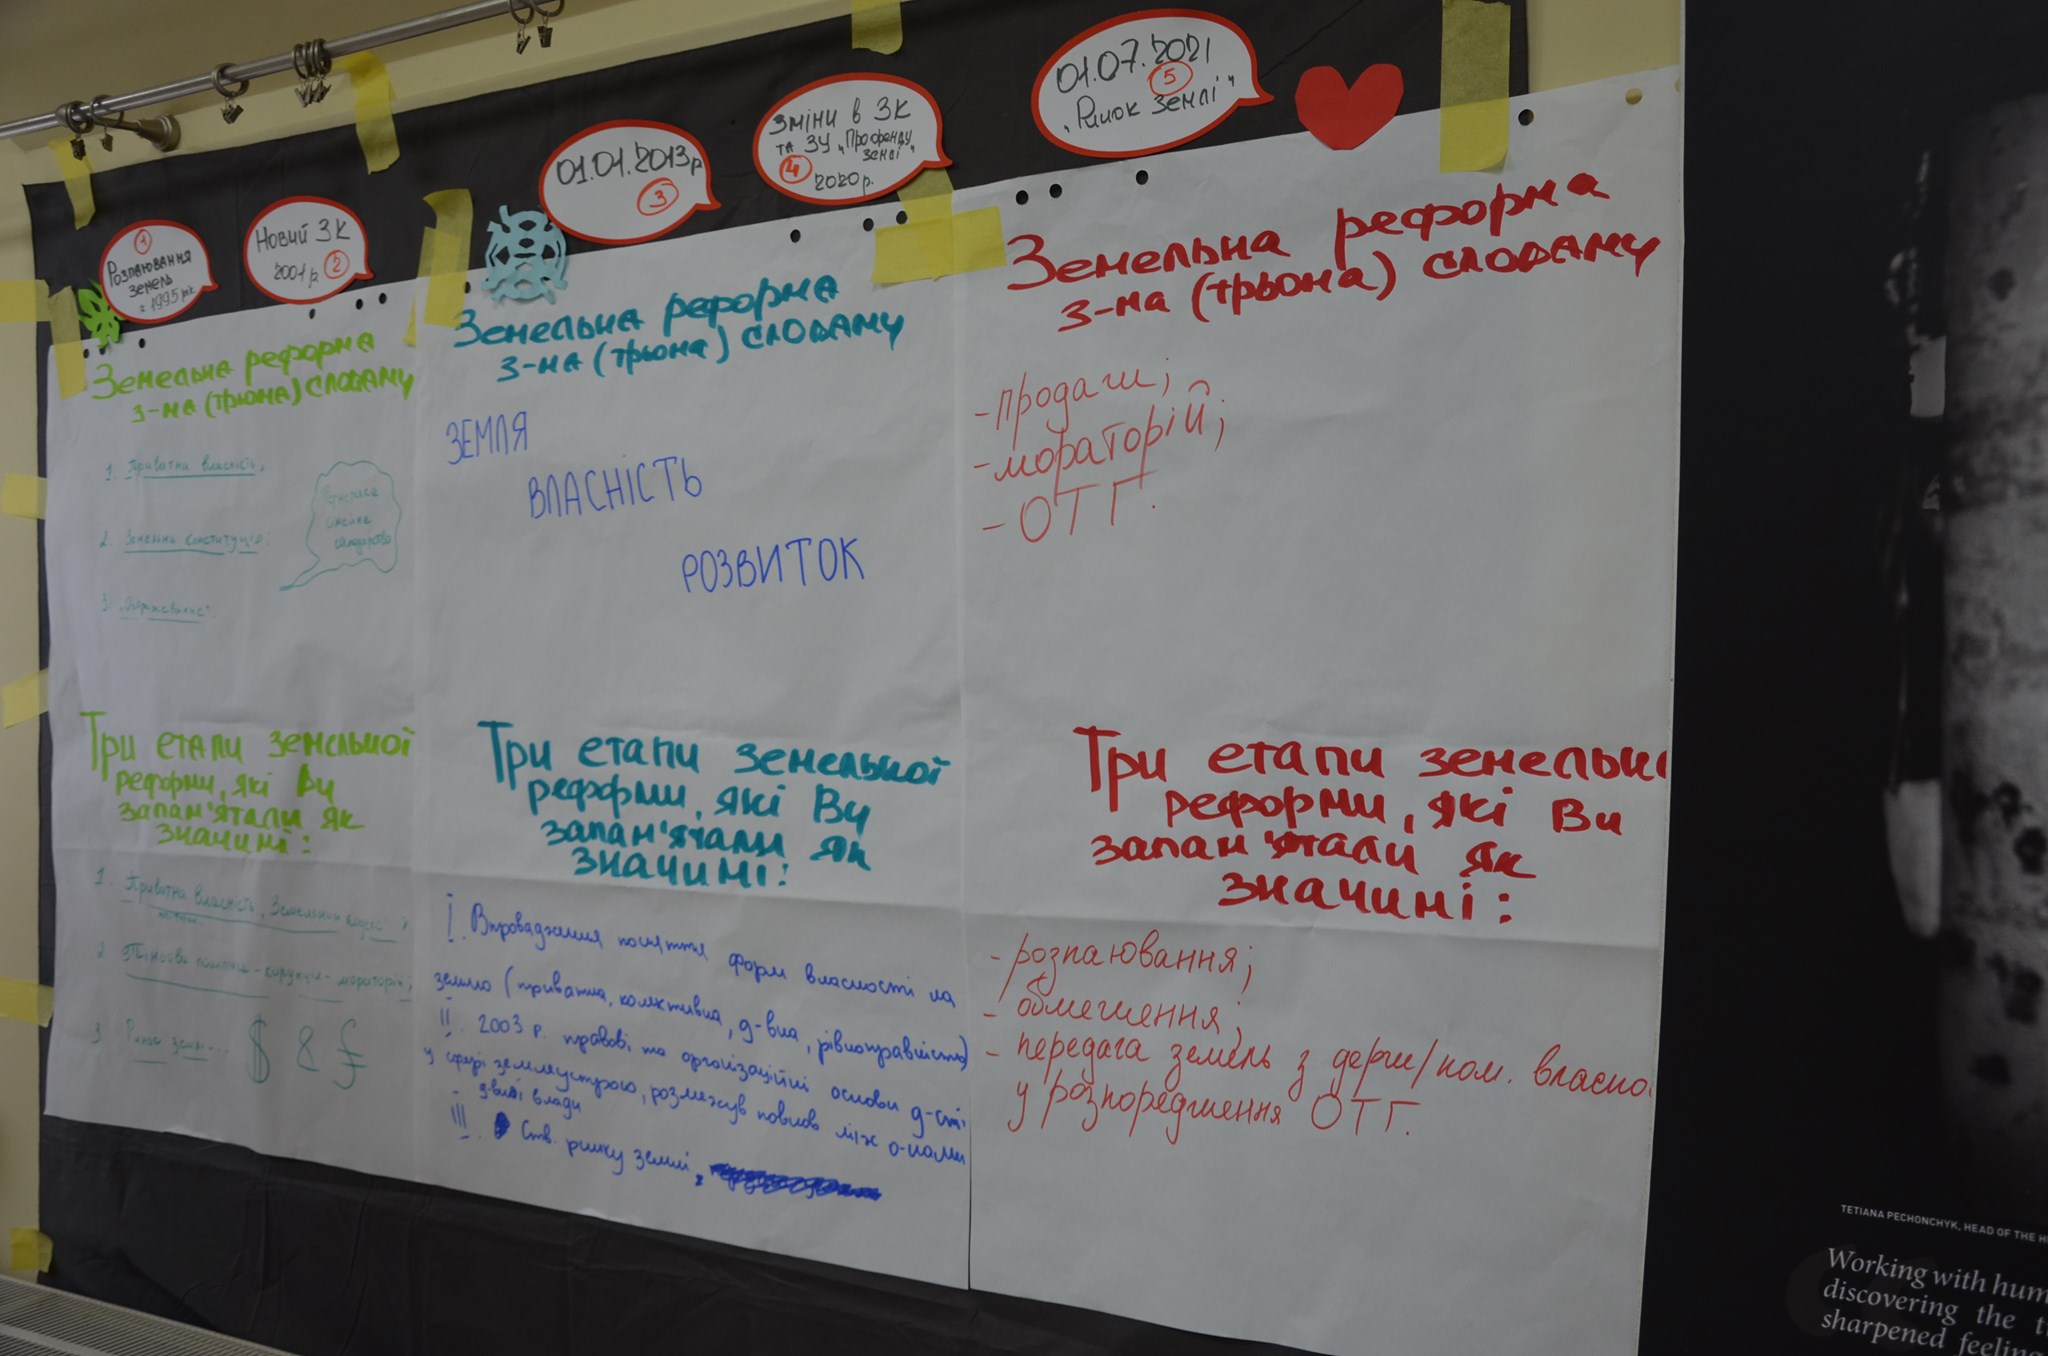 1
Розпаювання
земель
з 1995 рік
Новий ЗК
2001 р. 2
01.01.2013р
3
Зміни в ЗК
та ЗУ „Про оренду
землі"
4 2020р.
01.07.2021
5
„Ринок землі"
Земельна реформа
3-ма (трьома) словами
1. Приватна власність;
2. Земельна конституція;
3.
Три етапи земельної
реформи, які Ви
запам'ятали як
значимі:
1. Приватна власність, Земельний кодекс;
2. мораторій;
3. Ринок землі...
$ &
Земельна реформа
3-ма (трьома) словами
ЗЕМЛЯ
ВЛАСНІСТЬ
РОЗВИТОК
Три етапи земельної
реформи, які Ви
запам'ятали як
значимі:
I. Впровадження поняття форм власності на
землю (приватна, колективна, д-вна, рівноправність)
II. 2003 р. правові та організаційні основи д-сті
у сфері землеустрою, розмежув повнов між о-нами
д-вної влади
III. Ств. ринку землі,
Земельна реформа
3-ма (трьома) словами
- продаж;
- мораторій;
- ОТГ.
Три етапи земельн
реформи, які Ви
запам'ятали як
значимі:
- розпаювання;
- обмеження;
- передача земель з держ/ком. власно
у розпорядження ОТГ.
TETIANA PECHONCHYK, HEAD OF THE H
Working with hum
discovering the t
sharpened feelin